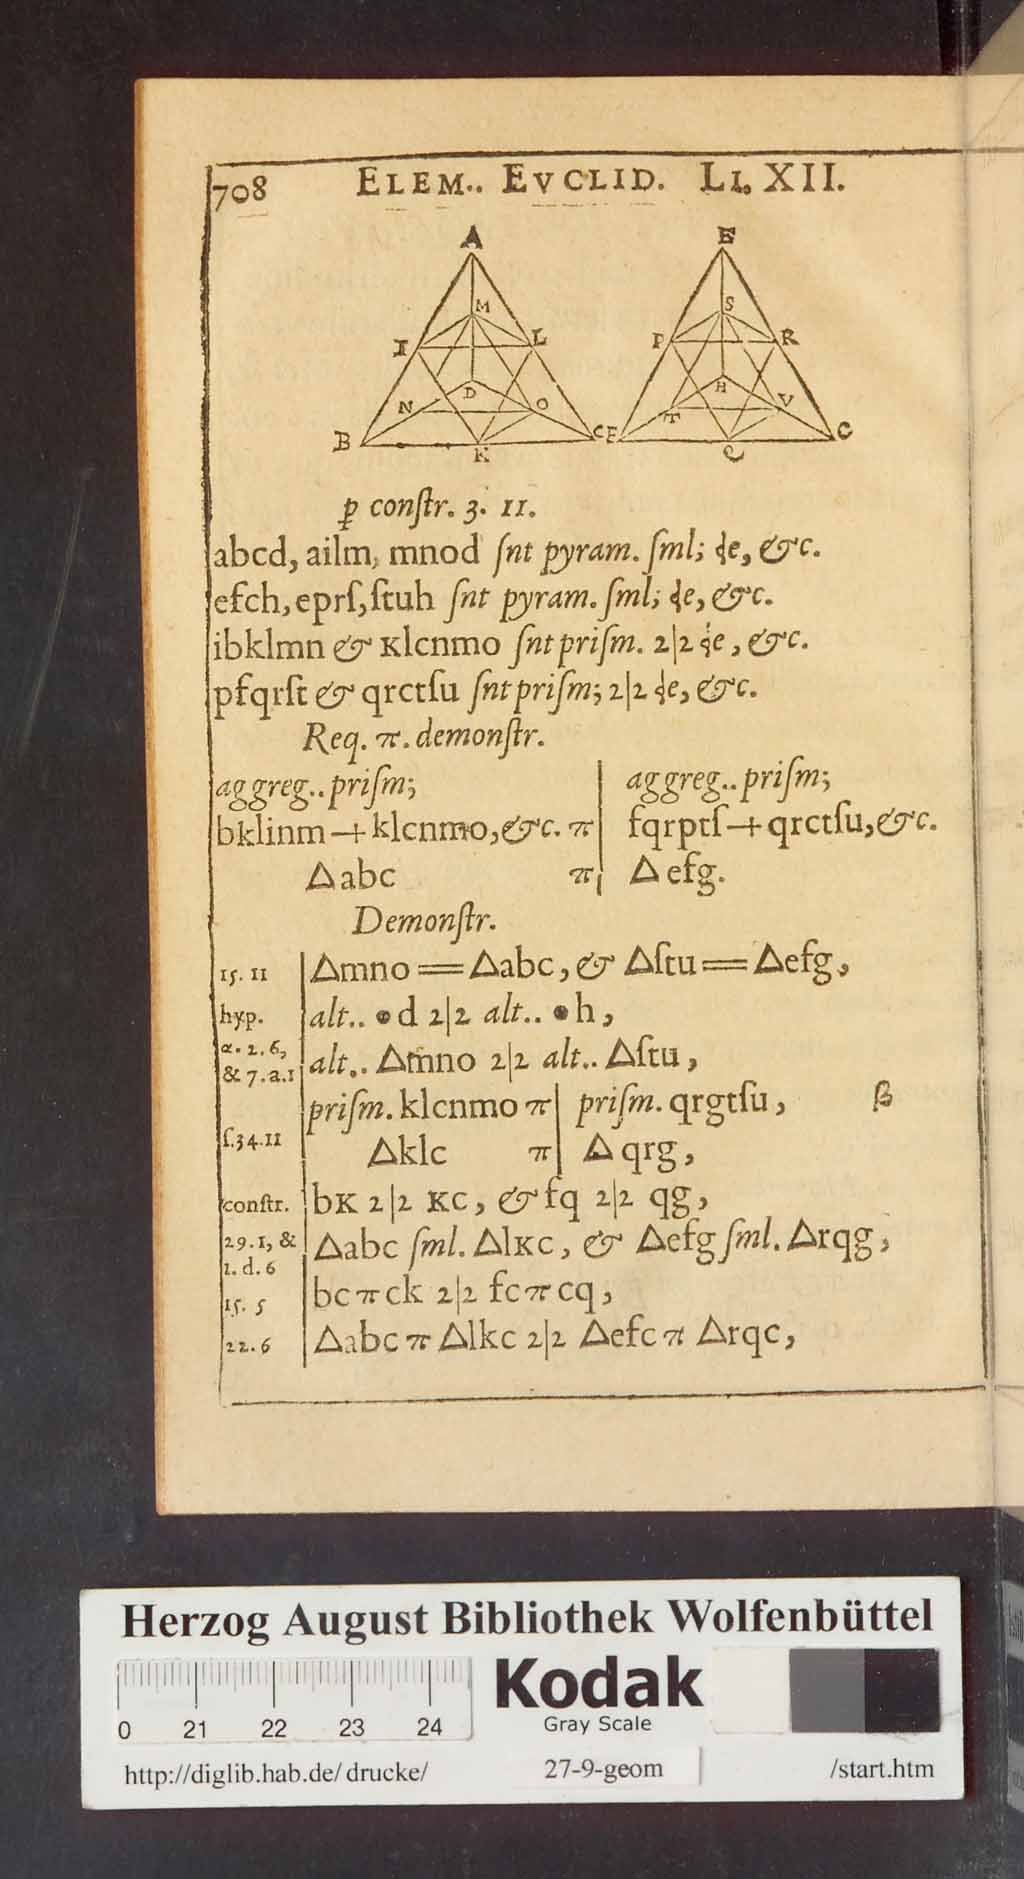 708 ELEM.. EVCLID. LI. XII.
A E
M S
I L P R
D H
N O T V
B C F G
K Q
ꝑ conſtr. 3. 11.
abcd, ailm, mnod ſnt pyram. ſml; &c.
efch, eprſ, ſtuh ſnt pyram. ſml; &c.
ibklmn & klcnmo ſnt priſm. 2|2 &c.
pfqrſt & qrctſu ſnt priſm; 2|2 &c.
Req. π. demonſtr.
aggreg.. priſm; | aggreg.. priſm;
bklinm + klcnmo, &c. π | fqrptſ + qrctſu, &c.
△abc π | △efg.
Demonſtr.
15. 11 | △mno = △abc, & △ſtu = △efg,
hyp. | alt.. •d 2|2 alt.. •h,
α. 2. 6,
& 7. a. 1 | alt.. △mno 2|2 alt.. △ſtu,
priſm. klcnmo π | priſm. qrgtſu, β
ſ. 34. 11 | △klc π | △qrg,
conſtr. | bk 2|2 kc, & fq 2|2 qg,
29. 1, &
1. d. 6 | △abc ſml. △lkc, & △efg ſml. △rqg,
15. 5 | bc π ck 2|2 fc π cq,
22. 6 | △abc π △lkc 2|2 △efc π △rqc,
Herzog August Bibliothek Wolfenbüttel
Kodak
Gray Scale
0 21 22 23 24
http://diglib.hab.de/drucke/ 27-9-geom /start.htm